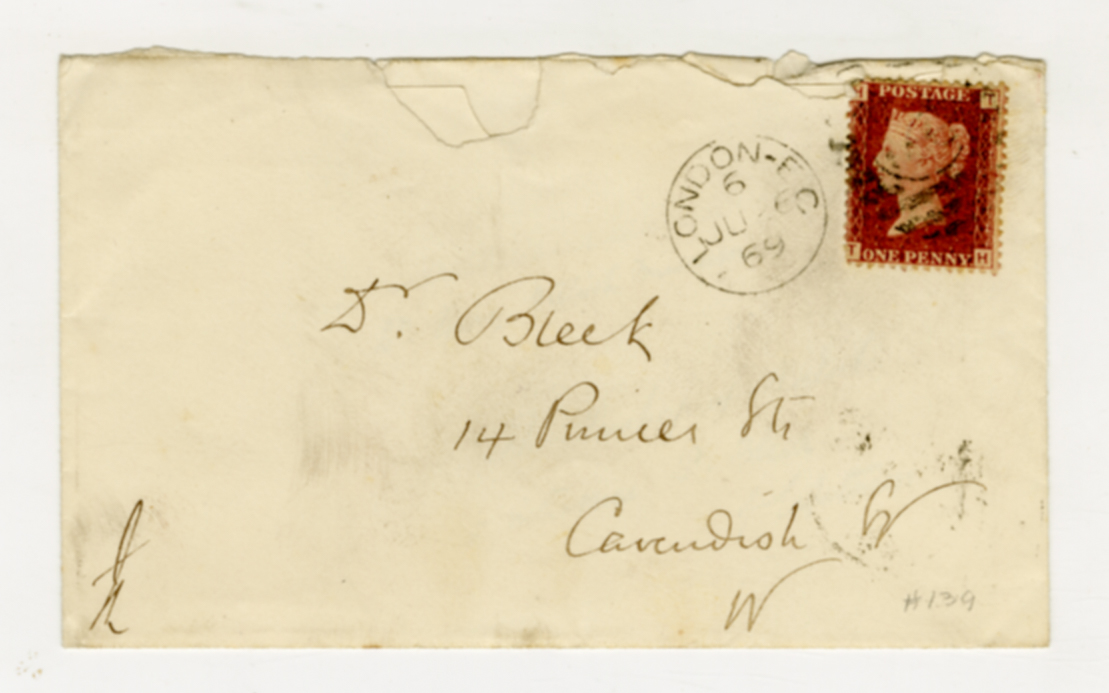 POSTAGE
T
ONE PENNY
H
LONDON-E.C
6
JU
69
Dr. Bleek
14 Princes Str
Cavendish Sq
W
#139